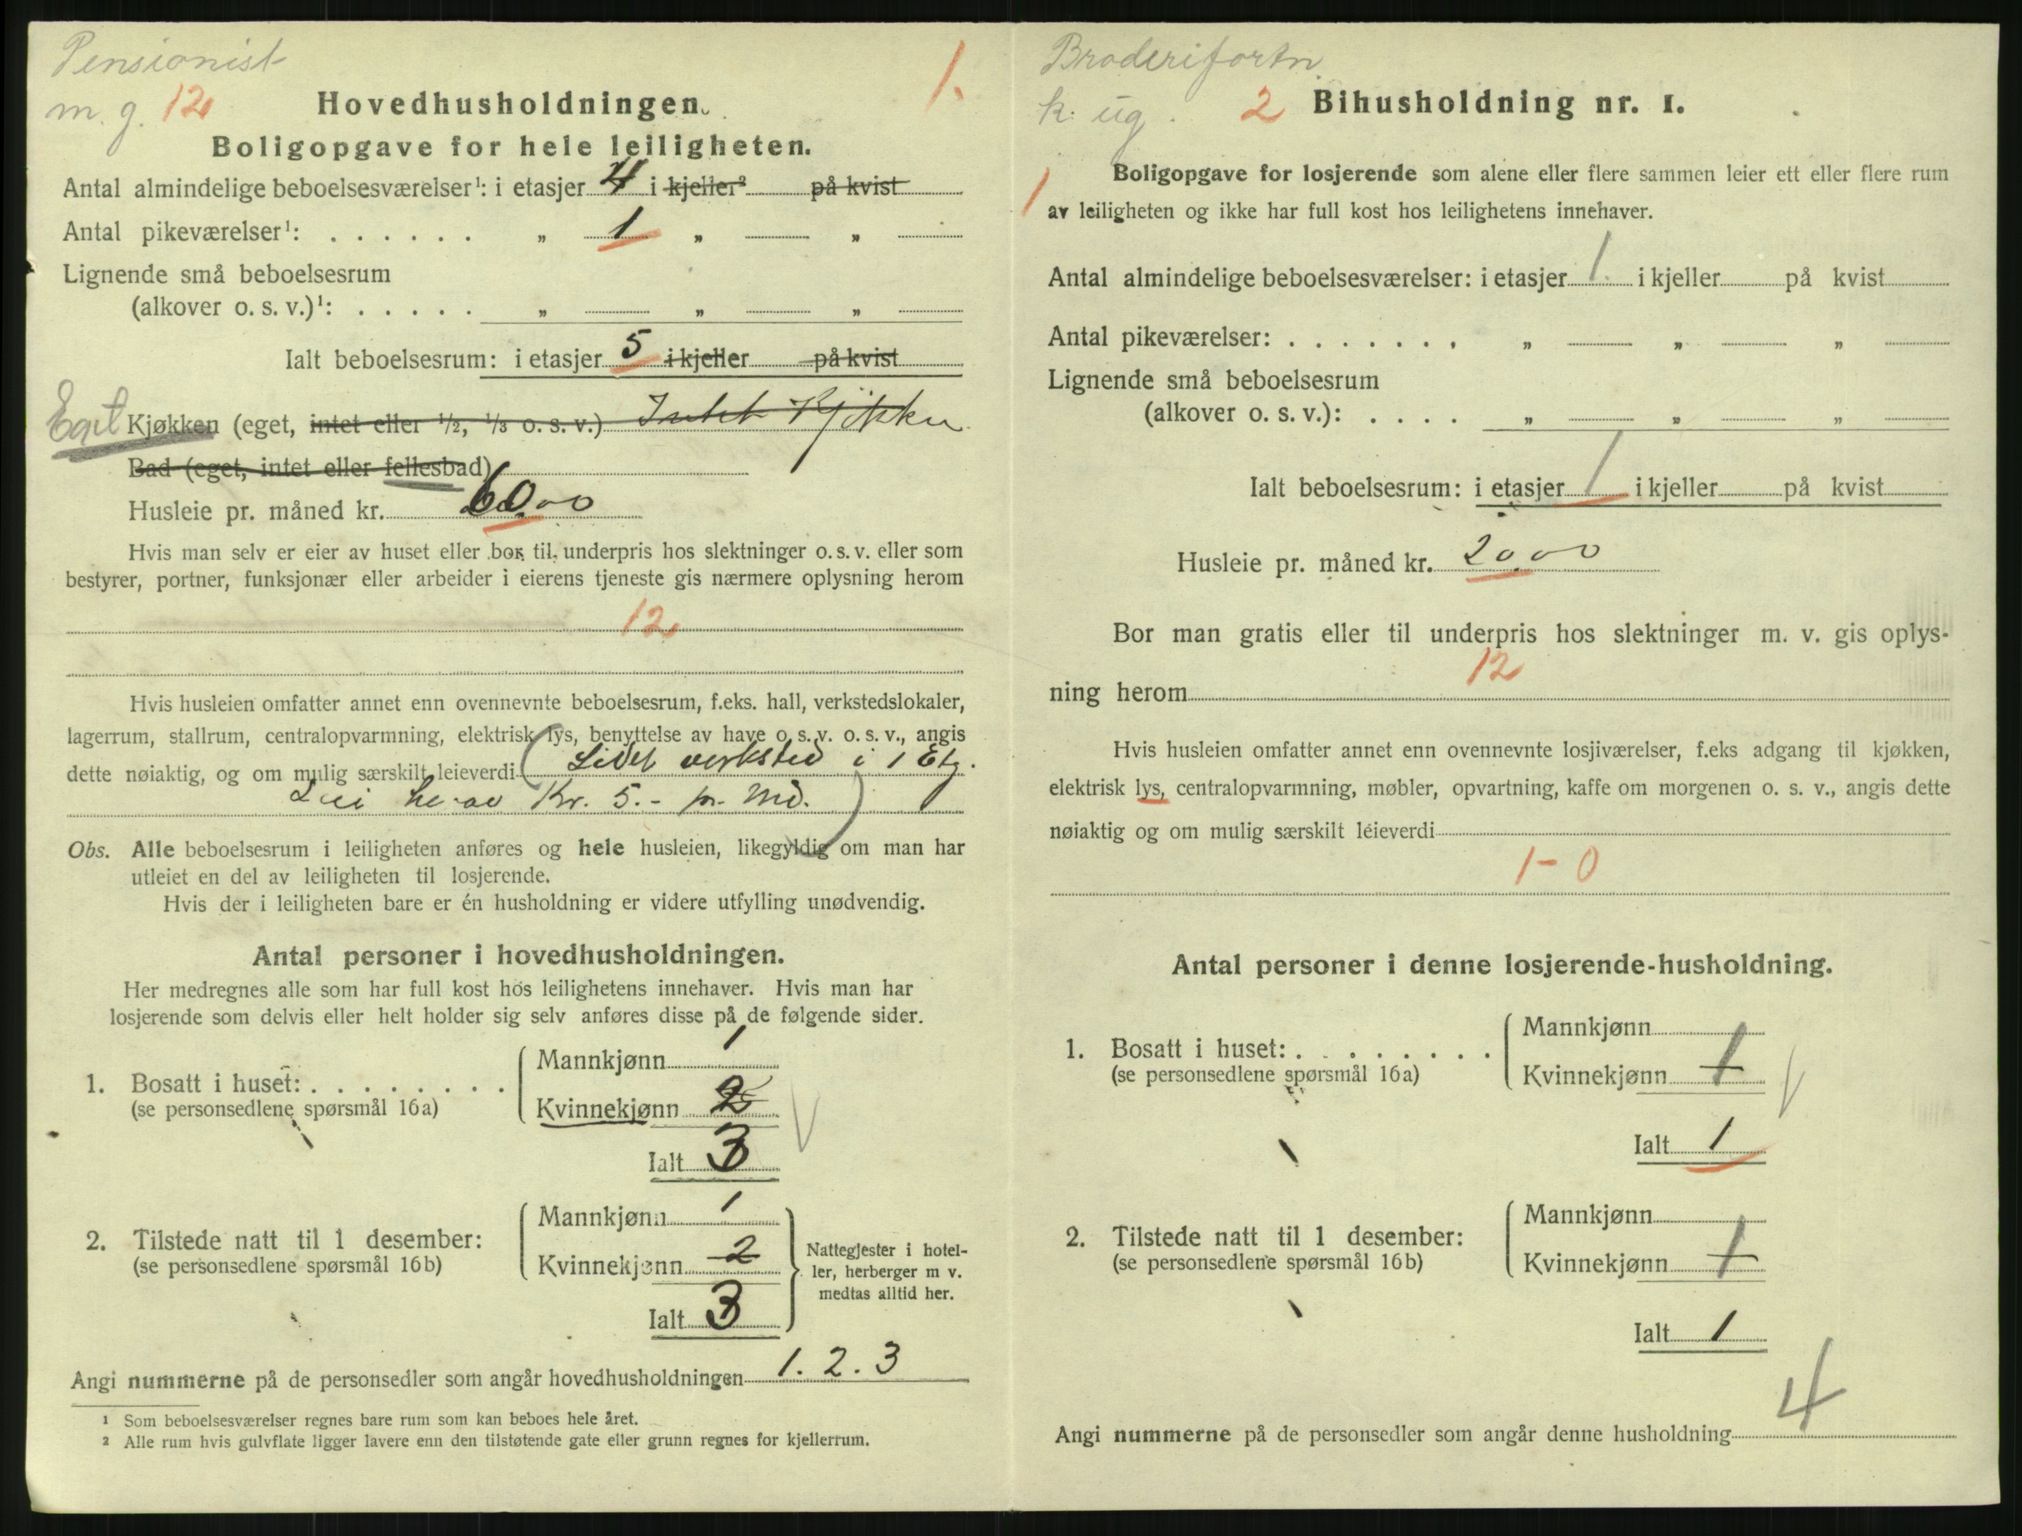 Pensionist
m. g. 12
1.
Hovedhusholdningen.
Boligopgave for hele leiligheten.
Antal almindelige beboelsesværelser¹: i etasjer 4 i kjeller² på kvist
Antal pikeværelser¹: . . . . . . „ 1 „ „
Lignende små beboelsesrum
(alkover o. s. v.)¹: . . . . . „ „ „
Ialt beboelsesrum: i etasjer 5 i kjeller på kvist
Eget Kjøkken (eget, intet eller ½, ⅓ o. s. v.) Intet Kjøkken
Bad (eget, intet eller fellesbad)
Husleie pr. måned kr. 60.00
Hvis man selv er eier av huset eller bor til underpris hos slektninger o. s. v. eller som
bestyrer, portner, funksjonær eller arbeider i eierens tjeneste gis nærmere oplysning herom
12
Hvis husleien omfatter annet enn ovennevnte beboelsesrum, f.eks. hall, verkstedslokaler,
lagerrum, stallrum, centralopvarmning, elektrisk lys, benyttelse av have o. s. v. o. s. v., angis
dette nøiaktig, og om mulig særskilt leieverdi (Lidet verksted i 1 Etg.
Leie herav Kr. 5.- pr. Md.)
Obs. Alle beboelsesrum i leiligheten anføres og hele husleien, likegyldig om man har
utleiet en del av leiligheten til losjerende.
Hvis der i leiligheten bare er én husholdning er videre utfylling unødvendig.
Antal personer i hovedhusholdningen.
Her medregnes alle som har full kost hos leilighetens innehaver. Hvis man har
losjerende som delvis eller helt holder sig selv anføres disse på de følgende sider.
1. Bosatt i huset: . . . . . . . .
(se personsedlene spørsmål 16a)
Mannkjønn 1
Kvinnekjønn 2
Ialt 3
2. Tilstede natt til 1 desember:
(se personsedlene spørsmål 16b)
Mannkjønn 1
Kvinnekjønn 2
Ialt 3
Nattegjester i hotel-
ler, herberger m v.
medtas alltid her.
Angi nummerne på de personsedler som angår hovedhusholdningen 1. 2. 3
¹ Som beboelsesværelser regnes bare rum som kan beboes hele året.
² Alle rum hvis gulvflate ligger lavere enn den tilstøtende gate eller grunn regnes for kjellerrum.
Broderifortn.
k. ug. 2 Bihusholdning nr. 1.
1
Boligopgave for losjerende som alene eller flere sammen leier ett eller flere rum
av leiligheten og ikke har full kost hos leilighetens innehaver.
Antal almindelige beboelsesværelser: i etasjer 1 i kjeller på kvist
Antal pikeværelser: . . . . . . . „ „ „
Lignende små beboelsesrum
(alkover o. s. v.): . . . . „ „ „
Ialt beboelsesrum: i etasjer 1 i kjeller på kvist
Husleie pr. måned kr. 20.00
Bor man gratis eller til underpris hos slektninger m. v. gis oplys-
ning herom 12
Hvis husleien omfatter annet enn ovennevnte losjiværelser, f.eks adgang til kjøkken,
elektrisk lys, centralopvarmning, møbler, opvartning, kaffe om morgenen o. s. v., angis dette
nøiaktig og om mulig særskilt leieverdi
1-0
Antal personer i denne losjerende-husholdning.
1. Bosatt i huset: . . . . . . . .
(se personsedlene spørsmål 16a)
Mannkjønn
Kvinnekjønn 1
Ialt 1
2. Tilstede natt til 1 desember:
(se personsedlene spørsmål 16b)
Mannkjønn
Kvinnekjønn 1
Ialt 1
Angi nummerne på de personsedler som angår denne husholdning 4